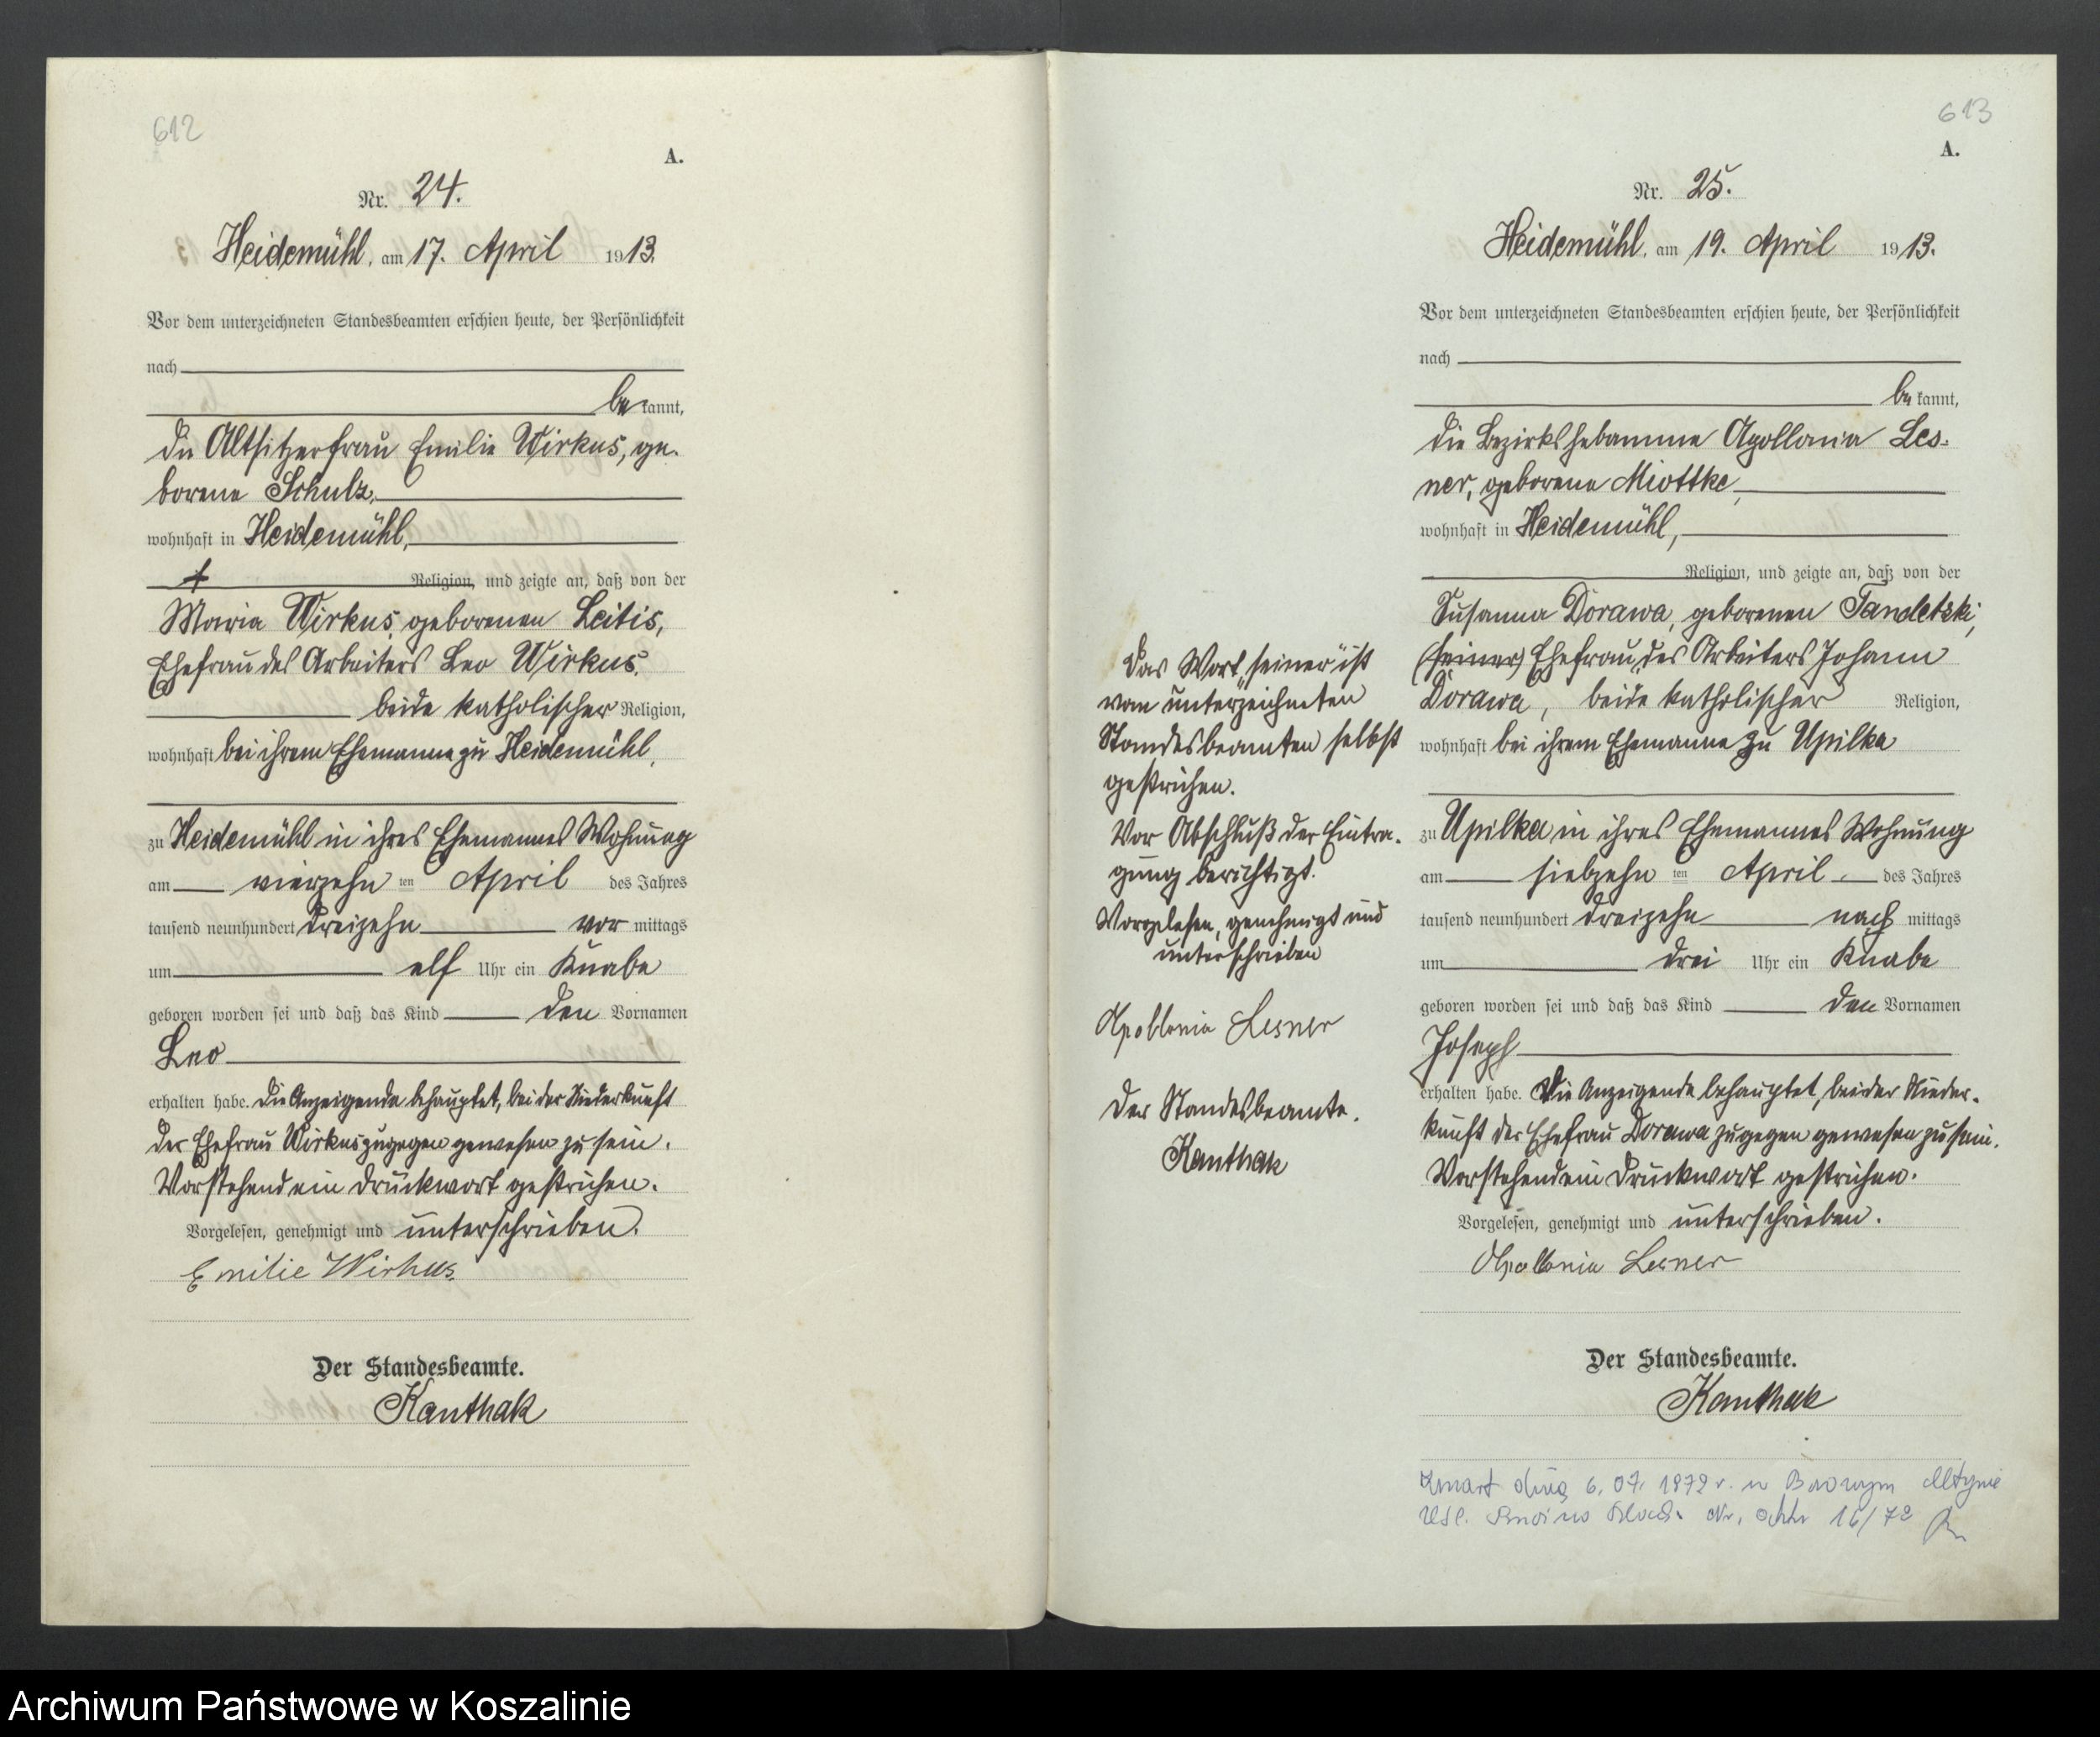 612
A.
Nr. 24.
Heidemühl, am 17. April 1913.
Vor dem unterzeichneten Standesbeamten erschien heute, der Persönlichkeit
nach
bekannt,
die Altsitzerfrau Emilie Wirkus, ge-
borene Schulz,
wohnhaft in Heidemühl,
Religion, und zeigte an, daß von der
Maria Wirkus, geborenen Leitis,
Ehefrau des Arbeiters Leo Wirkus,
beide katholischer Religion,
wohnhaft bei ihrem Ehemanne zu Heidemühl,
zu Heidemühl in ihres Ehemannes Wohnung
am vierzehn ten April des Jahres
tausend neunhundert dreizehn vor mittags
um elf Uhr ein Knabe
geboren worden sei und daß das Kind den Vornamen
Leo
erhalten habe. Die Anzeigende behauptet, bei der Niederkunft
der Ehefrau Wirkus zugegen gewesen zu sein.
Vorstehend ein Druckwort gestrichen.
Vorgelesen, genehmigt und unterschrieben.
Emilie Wirkus.
Der Standesbeamte.
Kanthak
613
A.
Nr. 25.
Heidemühl, am 19. April 1913.
Vor dem unterzeichneten Standesbeamten erschien heute, der Persönlichkeit
nach
bekannt,
die Bezirkshebamme Apollonia Les-
ner, geborene Miottke,
wohnhaft in Heidemühl,
Religion, und zeigte an, daß von der
Susanna Dorawa, geborenen Tandetzki,
(seiner) Ehefrau des Arbeiters Johann
Dorawa, beide katholischer Religion,
wohnhaft bei ihrem Ehemanne zu Upilka
zu Upilka in ihres Ehemannes Wohnung
am siebzehn ten April des Jahres
tausend neunhundert dreizehn nach mittags
um drei Uhr ein Knabe
geboren worden sei und daß das Kind den Vornamen
Joseph
erhalten habe. Die Anzeigende behauptet, bei der Nieder-
kunft der Ehefrau Dorawa zugegen gewesen zu sein.
Vorstehend ein Druckwort gestrichen.
Vorgelesen, genehmigt und unterschrieben.
Apollonia Lesner
Der Standesbeamte.
Kanthak
Das Wort „seiner" ist
vom unterzeichneten
Standesbeamten selbst
gestrichen.
Vor Abschluß der Eintra-
gung berichtigt.
Vorgelesen, genehmigt und
unterschrieben
Apollonia Lesner
Der Standesbeamte.
Kanthak
Zmarł dnia 6.07.1972 r. w Borowym Młynie
USC. Nr. aktu 16/72
Archiwum Państwowe w Koszalinie